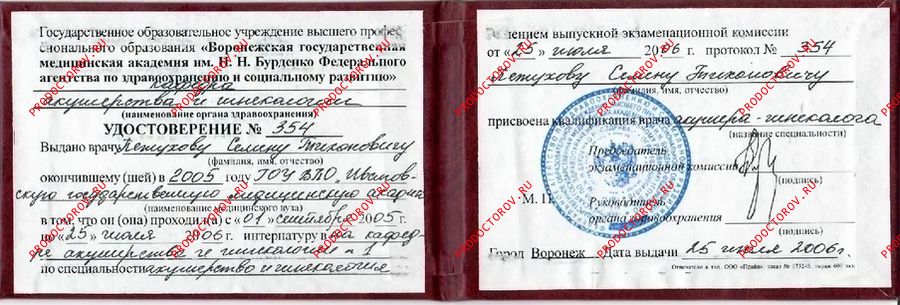 Государственное образовательное учреждение высшего профес
сионального образования «Воронежская государственная
медицинская академия им. Н. Н. Бурденко Федерального
агентства по здравоохранению и социальному развитию»
кафедра
акушерства и гинекологии
(наименование органа здравоохранения)
УДОСТОВЕРЕНИЕ № 354
Выдано врачу Петухову Семену Тихоновичу
(фамилия, имя, отчество)
окончившему (шей) в 2005 году ГОУ ВПО, Ивановскую
государственную медицинскую академию
(наименование медицинского вуза)
в том, что он (она) проходил(а) с «01» сентября 2005 г.
по «25» июля 2006 г. интернатуру в на кафед-
ре акушерства и гинекологии - 1
по специальности акушерство и гинекология
Решением выпускной экзаменационной комиссии
от «25» июля 2006 г. протокол № 354
Петухову Семену Тихоновичу
(фамилия, имя, отчество)
присвоена квалификация врача акушера-гинеколога
(название специальности)
Председатель
экзаменационной комиссии
(подпись)
М. П.
Руководитель
органа здравоохранения
(подпись)
Город Воронеж Дата выдачи 25 июля 2006г.
Отпечатано в тип. ООО «Прайм» заказ № 07524б, тираж 600 экз.
PRODOCTOROV.RU